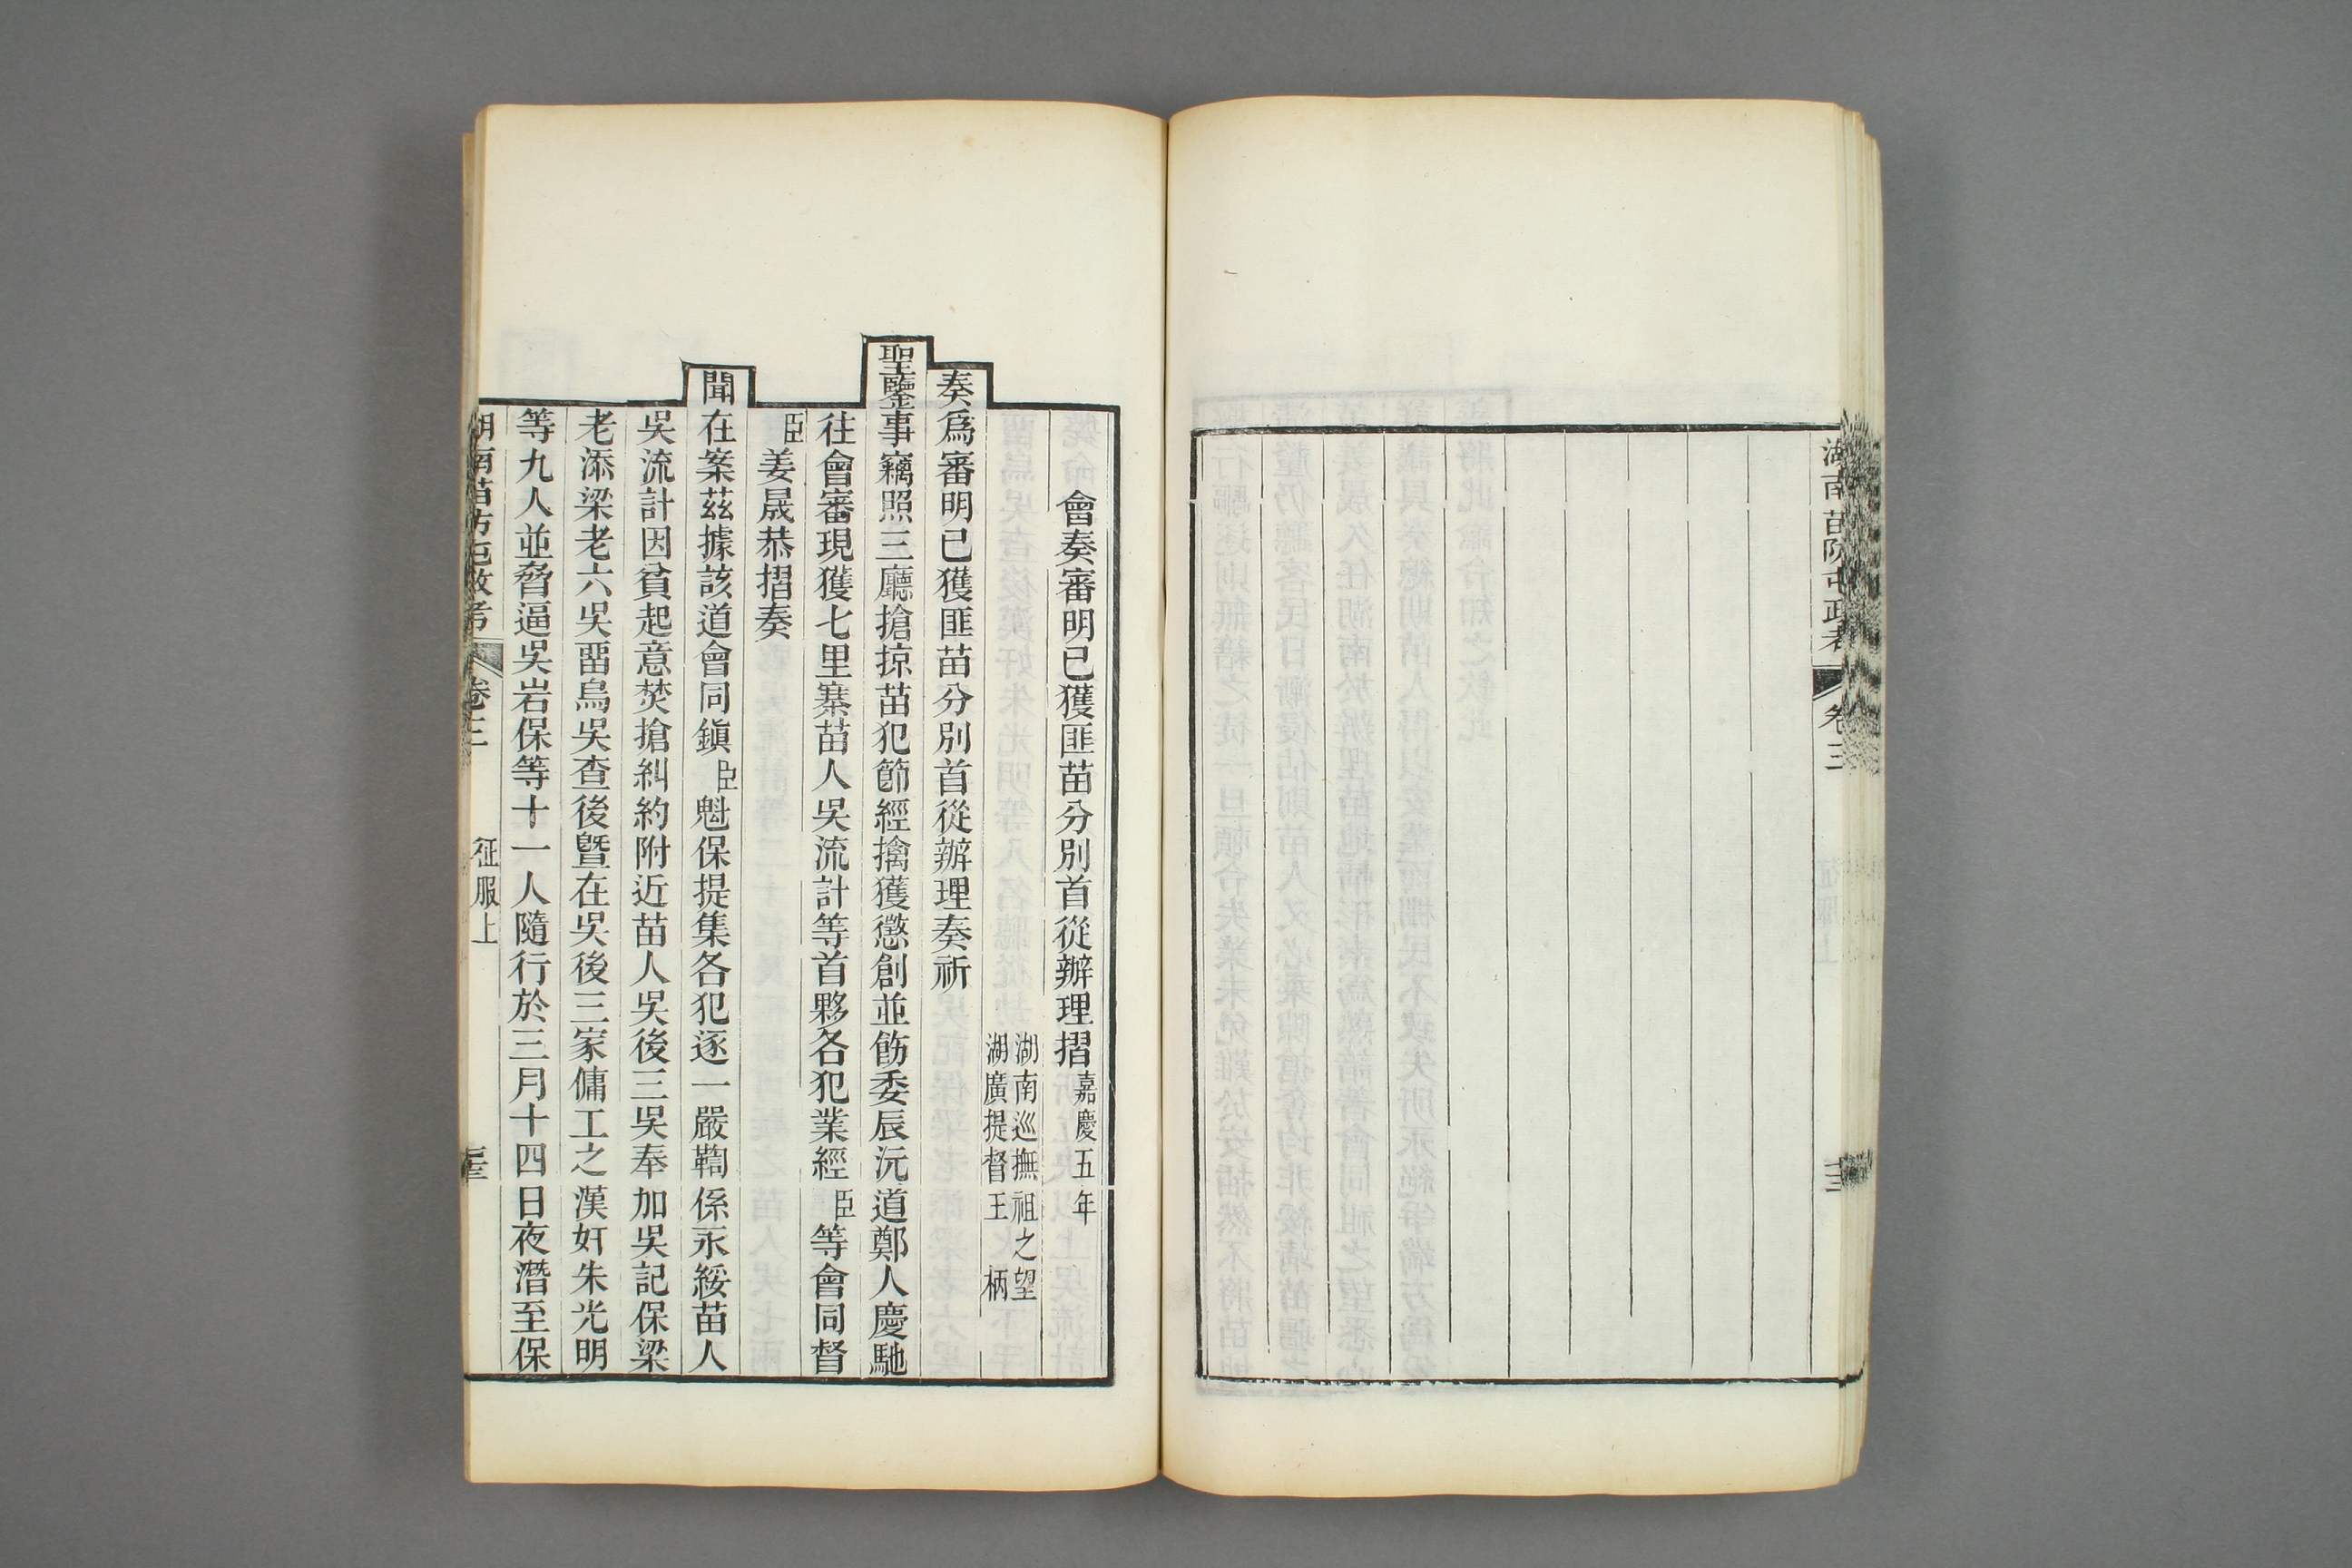 湖南苗防屯政考
卷三
會奏審明已獲匪苗分別首從辦理摺嘉慶五年
湖南巡撫祖之望
湖廣提督王柄
奏爲審明已獲匪苗分別首從辦理奏祈
聖鑒事竊照三廳搶掠苗犯節經擒獲懲創並飭委辰沅道鄭人慶馳
往會審現獲七里寨苗人吳流計等首夥各犯業經臣等會同督
臣姜晟恭摺奏
聞在案茲據該道會同鎮臣魁保提集各犯逐一嚴鞫係永綏苗人
吳流計因貧起意焚搶糾約附近苗人吳後三吳奉加吳記保梁
老添梁老六吳畱烏吳查後曁在吳後三家傭工之漢奸朱光明
等九人並脅逼吳岩保等十一人隨行於三月十四日夜潛至保
湖南苗防屯政考
卷三
征服上